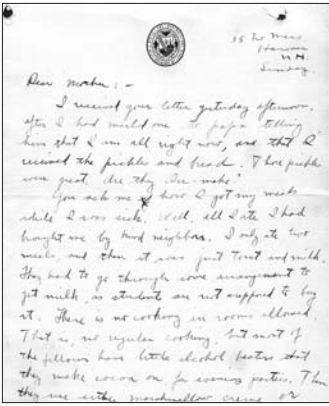 38 No. Mass
Hanover
N.H.
Sunday.
Dear Mother: -
I received your letter yesterday afternoon,
after I had mailed one to papa telling
him that I am all right now, and that I
received the pickles and bread. Those pickles
were great. Are they
You ask me how I got my meals
while I was sick. Well, all I ate I had
brought me by kind neighbors. I only ate two
meals, and then it was just toast and milk.
They had to go through some arrangement to
get milk, as students are not supposed to buy
it. There is no cooking in rooms allowed.
That is, no regular cooking, but most of
the fellows have little alcohol heaters that
they make cocoa on for evening parties. Then
they use either marshmallow creme or